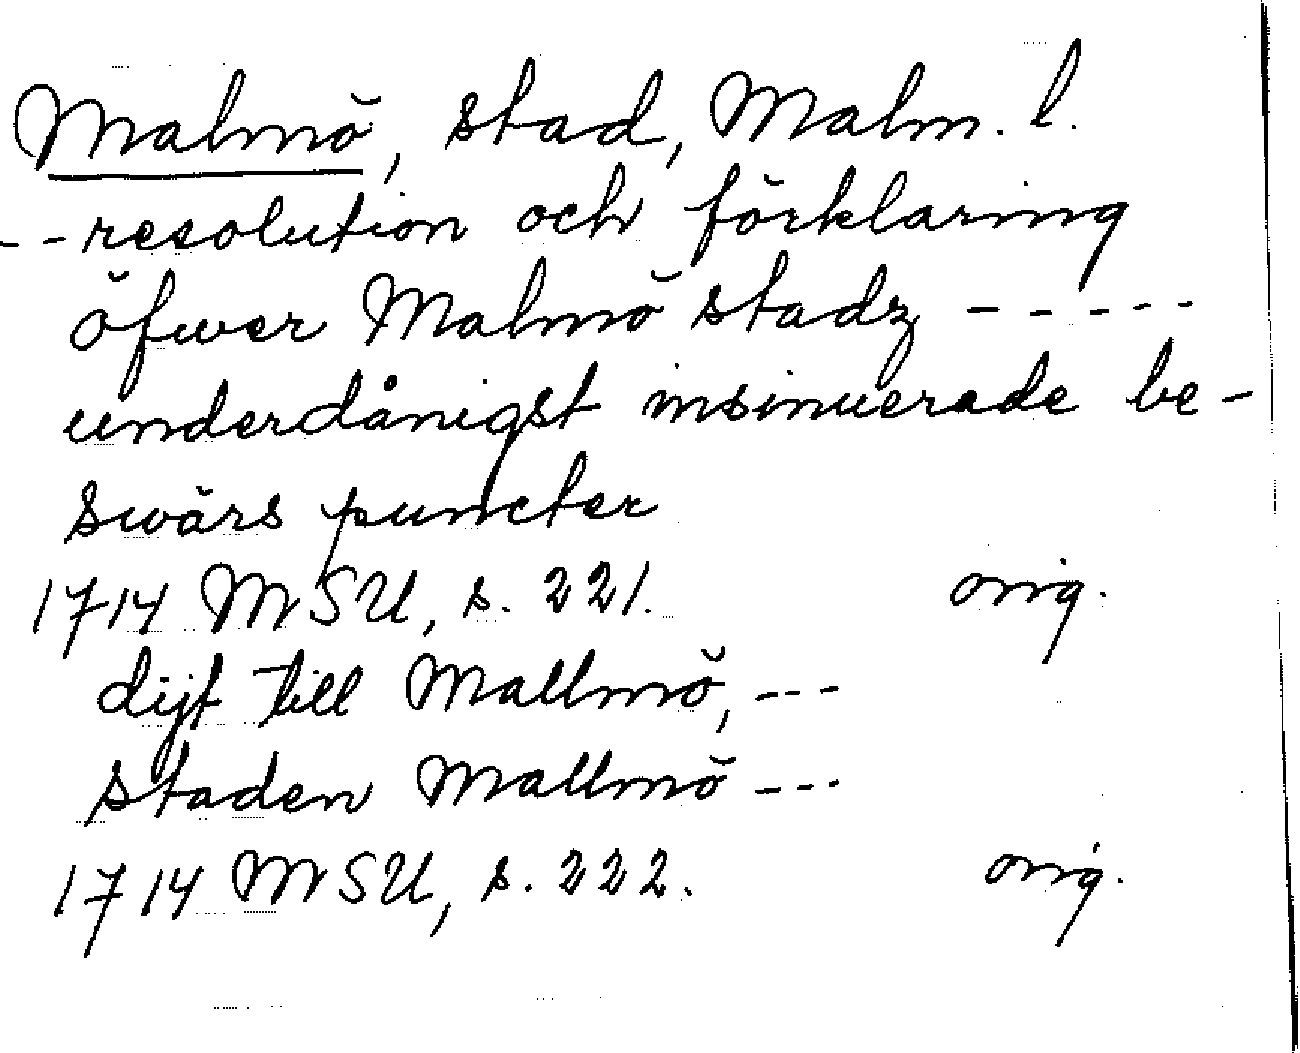 Malmö, stad, Malm. l.
-- resolution och förklaring
öfwer Malmö stadz - - - - -
underdånigst insinuerade be-
swärs puncter
1714 MSU, s. 221. orig.
dijt till Mallmö, ---
staden Mallmö ---
1714 MSU, s. 222. orig.